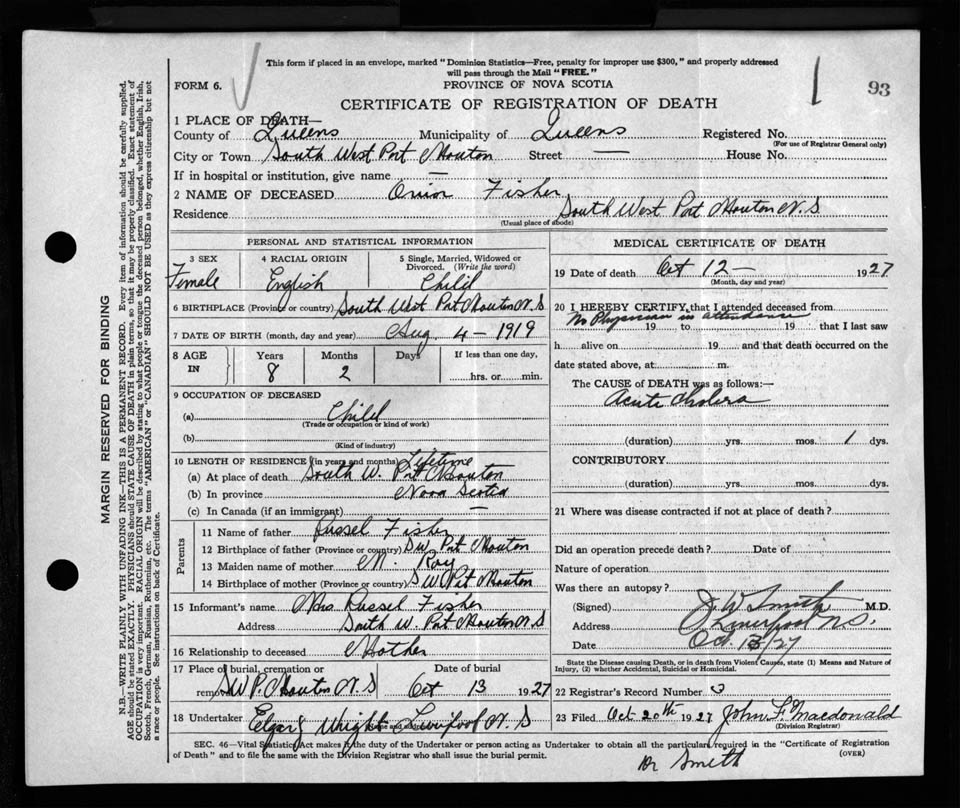 This form if placed in an envelope, marked "Dominion Statistics—Free, penalty for improper use $300," and properly addressed
will pass through the Mail "FREE."
FORM 6.
PROVINCE OF NOVA SCOTIA
93
CERTIFICATE OF REGISTRATION OF DEATH
1 PLACE OF DEATH—
County of Queens Municipality of Queens Registered No.
(For use of Registrar General only)
City or Town South West Port Mouton Street — House No.
If in hospital or institution, give name —
2 NAME OF DECEASED Fisher
Residence South West Port Mouton N.S
(Usual place of abode)
PERSONAL AND STATISTICAL INFORMATION
3 SEX 4 RACIAL ORIGIN 5 Single, Married, Widowed or Divorced. (Write the word)
Female English Child
6 BIRTHPLACE (Province or country) South West Port Mouton N.S
7 DATE OF BIRTH (month, day and year) Aug. 4 – 1919
8 AGE IN Years Months Days If less than one day,
8 2 hrs. or min.
9 OCCUPATION OF DECEASED
(a) Child
(Trade or occupation or kind of work)
(b)
(Kind of industry)
10 LENGTH OF RESIDENCE (in years and months) Lifetime
(a) At place of death South W. Port Mouton
(b) In province Nova Scotia
(c) In Canada (if an immigrant) —
Parents
11 Name of father Russel Fisher
12 Birthplace of father (Province or country) S W Port Mouton
13 Maiden name of mother M. Roy
14 Birthplace of mother (Province or country) S W Port Mouton
15 Informant's name Mrs. Russel Fisher
Address South W. Port Mouton N.S
16 Relationship to deceased Mother
17 Place of burial, cremation or removal S W P. Mouton N.S Date of burial Oct 13 1927
18 Undertaker Wright Liverpool N.S
MEDICAL CERTIFICATE OF DEATH
19 Date of death Oct 12 — 1927
(Month, day and year)
20 I HEREBY CERTIFY, that I attended deceased from
No Physician in attendance
19 to 19 that I last saw
h alive on 19 and that death occurred on the
date stated above, at m.
The CAUSE of DEATH was as follows:—
Acute Cholera
(duration) yrs. mos. 1 dys.
CONTRIBUTORY.
(duration) yrs. mos. dys.
21 Where was disease contracted if not at place of death?
Did an operation precede death? Date of
Nature of operation
Was there an autopsy?
(Signed) J W Smith M.D.
Address Liverpool N.S.
Date Oct. 13/27
State the Disease causing Death, or in death from Violent Causes, state (1) Means and Nature of
Injury, (2) whether Accidental, Suicidal or Homicidal.
22 Registrar's Record Number 3
23 Filed Oct 20th 1927 John F. Macdonald
(Division Registrar)
SEC. 46—Vital Statistics Act makes it the duty of the Undertaker or person acting as Undertaker to obtain all the particulars required in the "Certificate of Registration
of Death" and to file the same with the Division Registrar who shall issue the burial permit.
(OVER)
Dr Smith
MARGIN RESERVED FOR BINDING
N.B.—WRITE PLAINLY WITH UNFADING INK—THIS IS A PERMANENT RECORD. Every item of information should be carefully supplied.
AGE should be stated EXACTLY. PHYSICIANS should STATE CAUSE OF DEATH in plain terms, so that it may be properly classified. Exact statement of
OCCUPATION is very important. RACIAL ORIGIN will be described by stating to what people or tongue the deceased person belonged, whether English, Irish,
Scotch, French, German, Russian, Ruthenian, etc. The terms "AMERICAN" or "CANADIAN" SHOULD NOT BE USED as they express citizenship but not
a race or people. See instructions on back of Certificate.